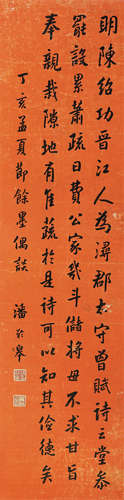 明陳紹功晉江人為潯郡太守曾賦詩云堂叅
罷設累蕭疏日費公家幾斗儲將母不求甘旨
奉親栽隙地有佳蔬於是詩可以知其儉德矣
丁亥孟夏節餘墨偶談 潘齡皋